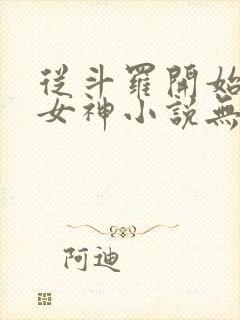 從斗羅開始
女神小說無
阿迪